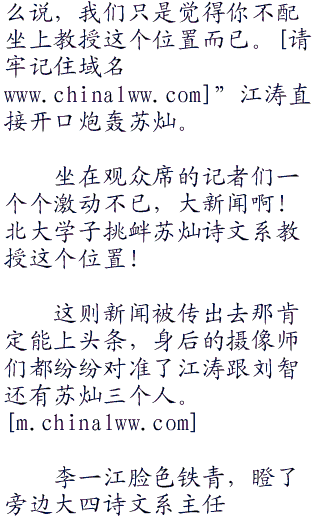 么说，我们只是觉得你不配
坐上教授这个位置而已。[请
牢记住域名
www.china1ww.com]”江涛直
接开口炮轰苏灿。
坐在观众席的记者们一
个个激动不已，大新闻啊！
北大学子挑衅苏灿诗文系教
授这个位置！
这则新闻被传出去那肯
定能上头条，身后的摄像师
们都纷纷对准了江涛跟刘智
还有苏灿三个人。
[m.china1ww.com]
李一江脸色铁青，瞪了
旁边大四诗文系主任